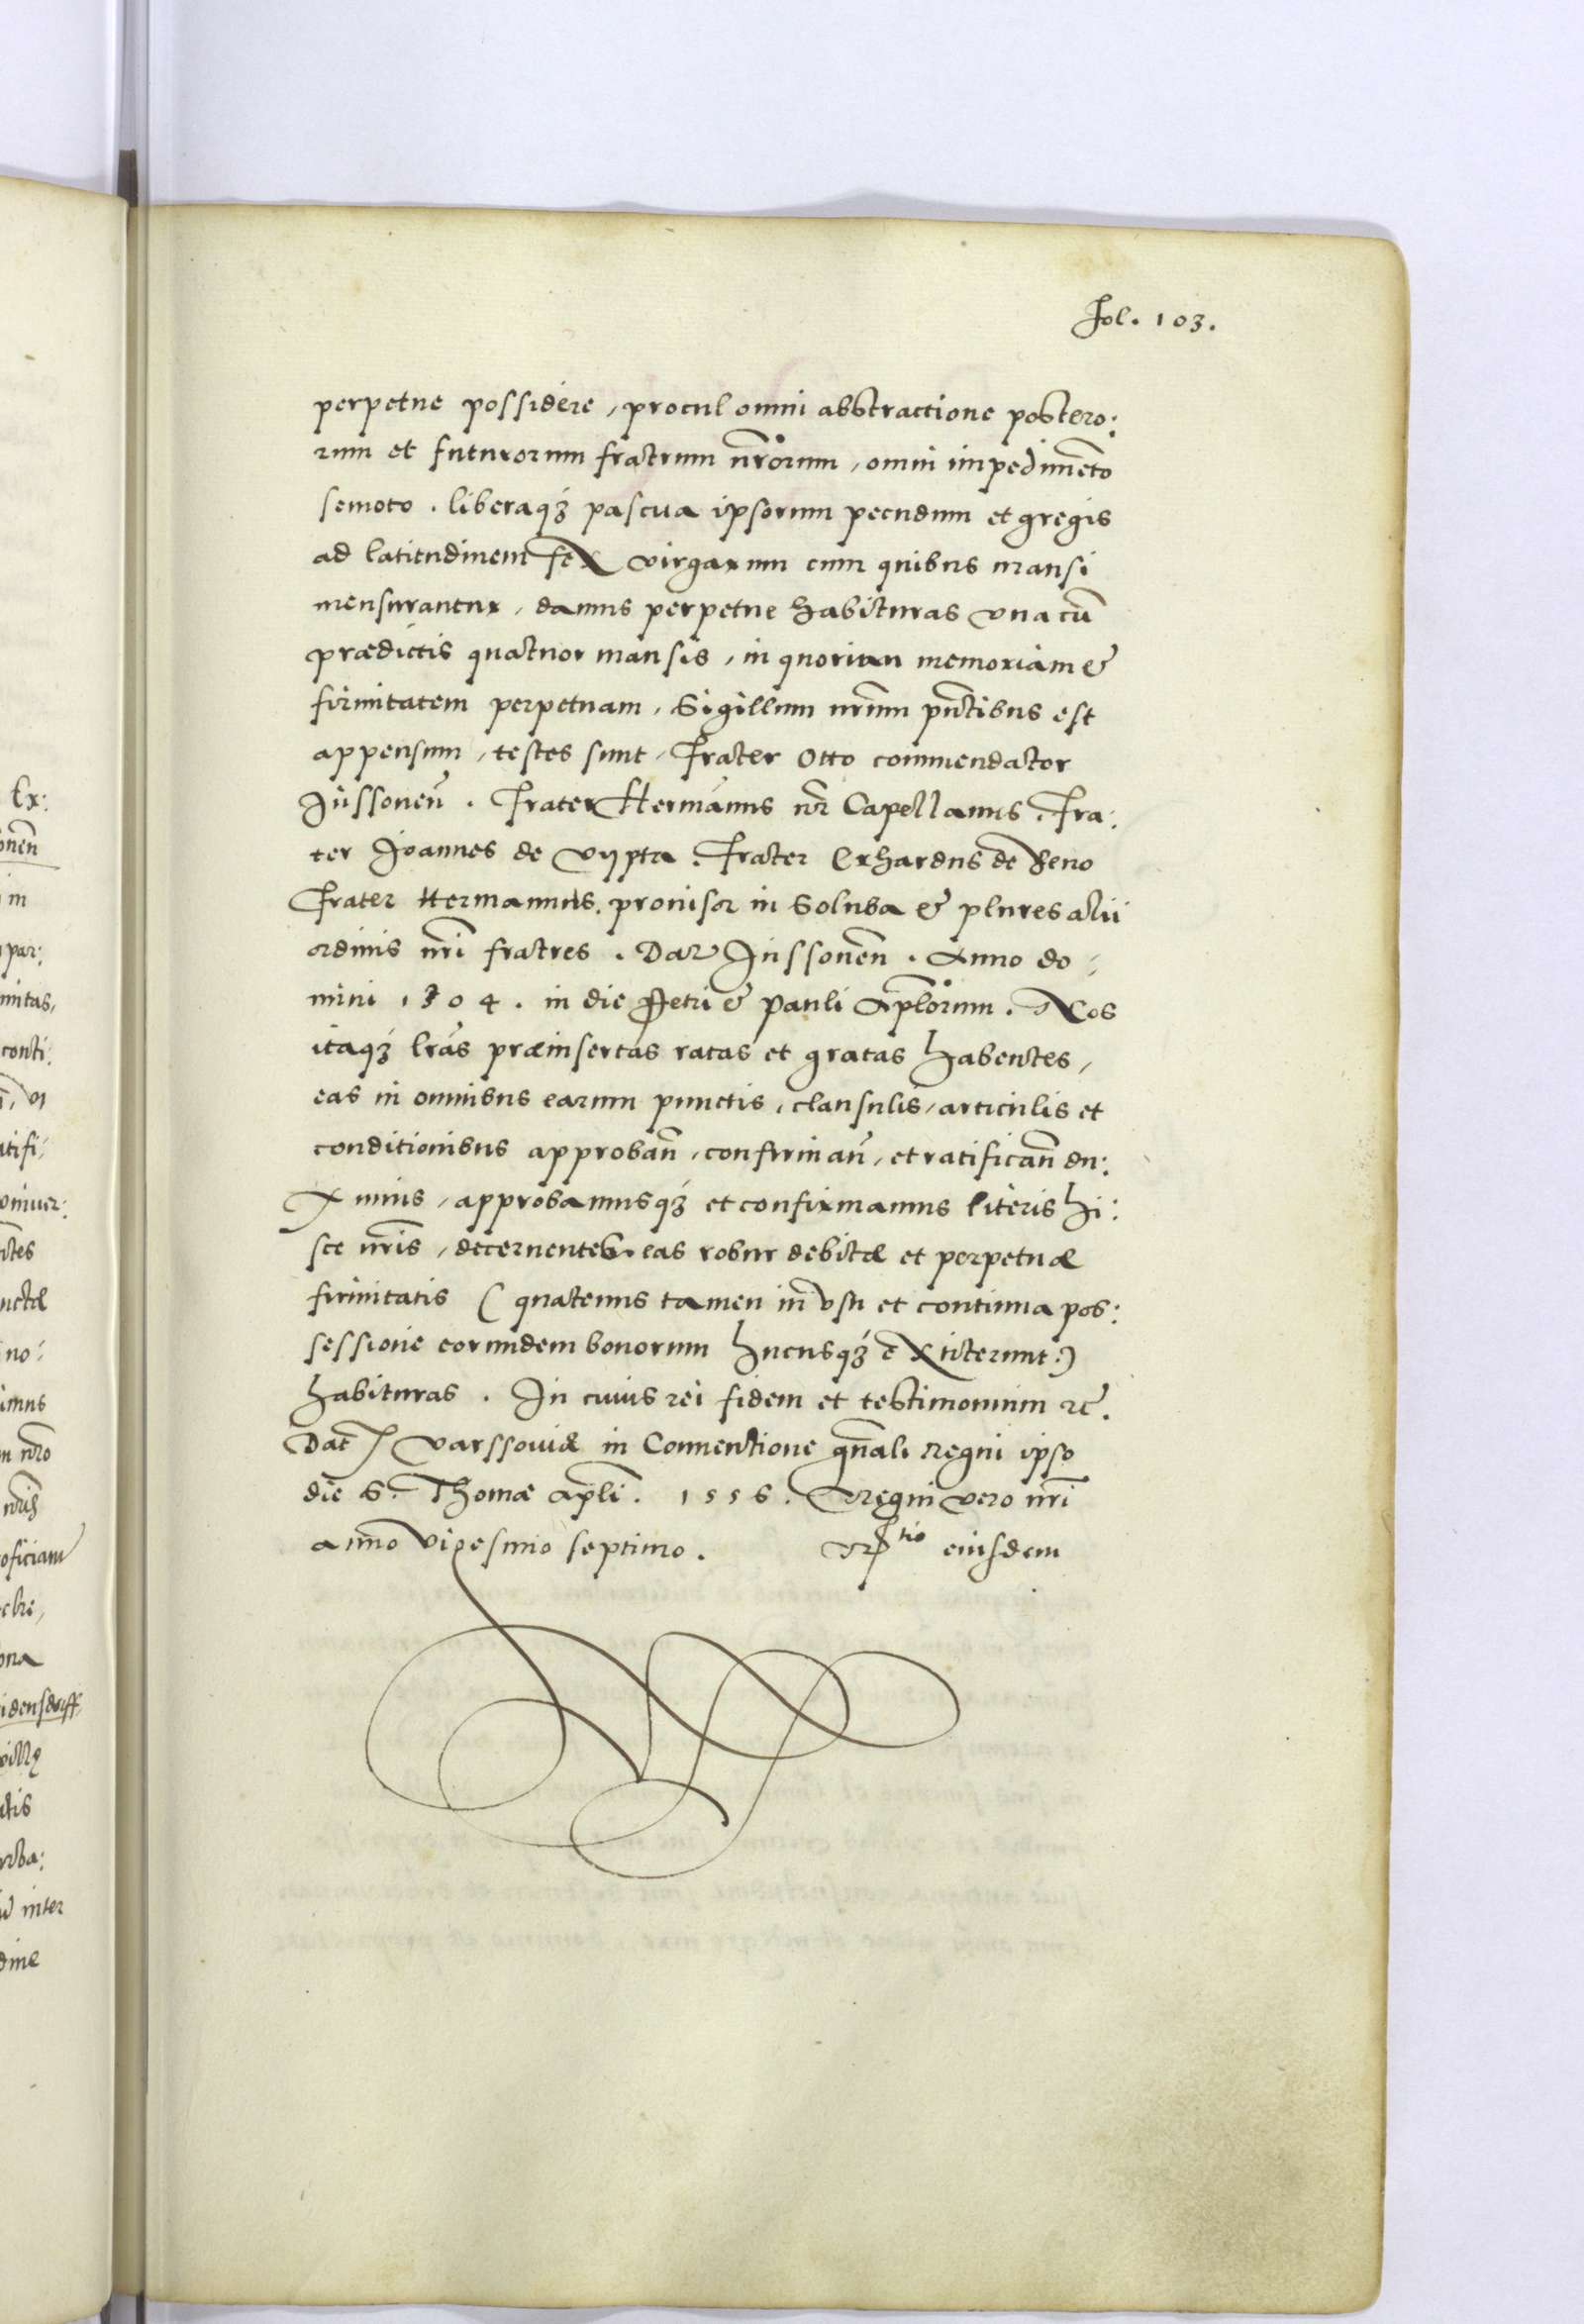 Fol. 103.
perpetue possidere, procul omni abstractione postero:
rum et futurorum fratrum nr̄orum, omni impedimēto
semoto. liberaqȝ pascua ipsorum pecudum et gregis
ad latitudinem sex virgarum cum quibus mansi
mensurantur, damus perpetue habituras una cū
prædictis quatuor mansis, in quorum memoriam &
firmitatem perpetuam, Sigillum nr̄um pn̄tibus est
appensum, testes sunt, Frater Otto commendator
Jussonen̄. Frater Hermānus nr̄ Capellanus, Fra:
ter Joannes de Vypta. Frater Erhardus de Reno
Frater Hermannus, provisor in Soluba & plures alii
ordinis nr̄i fratres. Dat Jussonēn. Anno do:
mini 1304. in die Petri & Pauli Apl̄orum. Nos
itaqȝ lr̄as præinsertas ratas et gratas habentes,
eas in omnibus earum punctis, clausulis, articulis et
conditionibus approban̄, confirman̄, et ratifican̄ du:
ximus, approbamusqȝ et confirmamus literis hi:
sce nr̄is, decernentes eas robur debitæ et perpetuæ
firmitatis (quatenus tamen in usu et continua pos:
sessione eorundem bonorum hucusqȝ extiterunt:)
habituras. In cuius rei fidem et testimonium etc̄.
Dat Varssoviæ in Conventione gn̄ali regni ipso
die S. Thomæ apl̄i. 1556. Regni vero nr̄i
anno vigesimo septimo. Rtio eiusdem
Ex:
onen̄
in
par:
mitas,
conti:
atifi:
univer:
ctes
nctæ
no:
imus
m nr̄o
nr̄is
oficiam
cbri,
ona
idensdorff
villę
atis
urba:
inter
dine